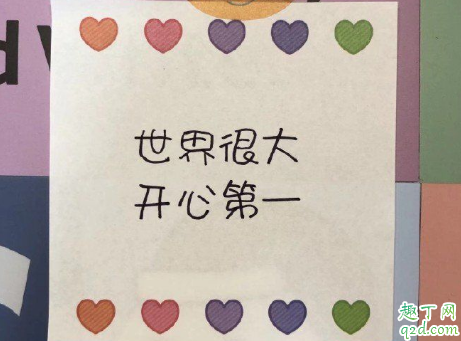 世界很大
开心第一
趣丁网
qzd.com